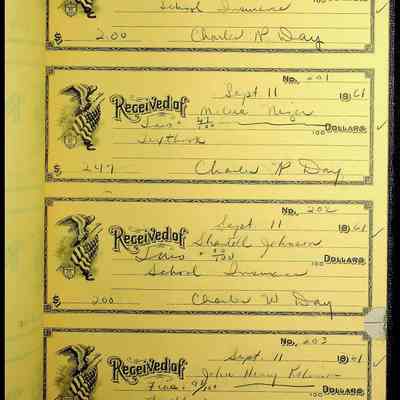 School Insurance
100 DOLLARS
$ 2.00 Charles R Day
No. 201
Sept 11 1961
Received of
Two & 47/100 100 DOLLARS
Textbook
$ 2.47 Charles R Day
No. 202
Sept 11 1961
Received of Shantell Johnson
Two & 00/100 100 DOLLARS
School Insurance
$ 2.00 Charles W Day
No. 203
Sept 11 1961
Received of John Henry Robinson
Five & /100 100 DOLLARS